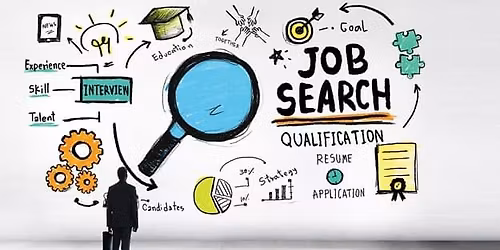 NEWS
Education
TOGETHER
Goal
JOB
SEARCH
Experience
Skill
Talent
INTERVIEW
QUALIFICATION
RESUME
APPLICATION
Strategy
30%
Candidates